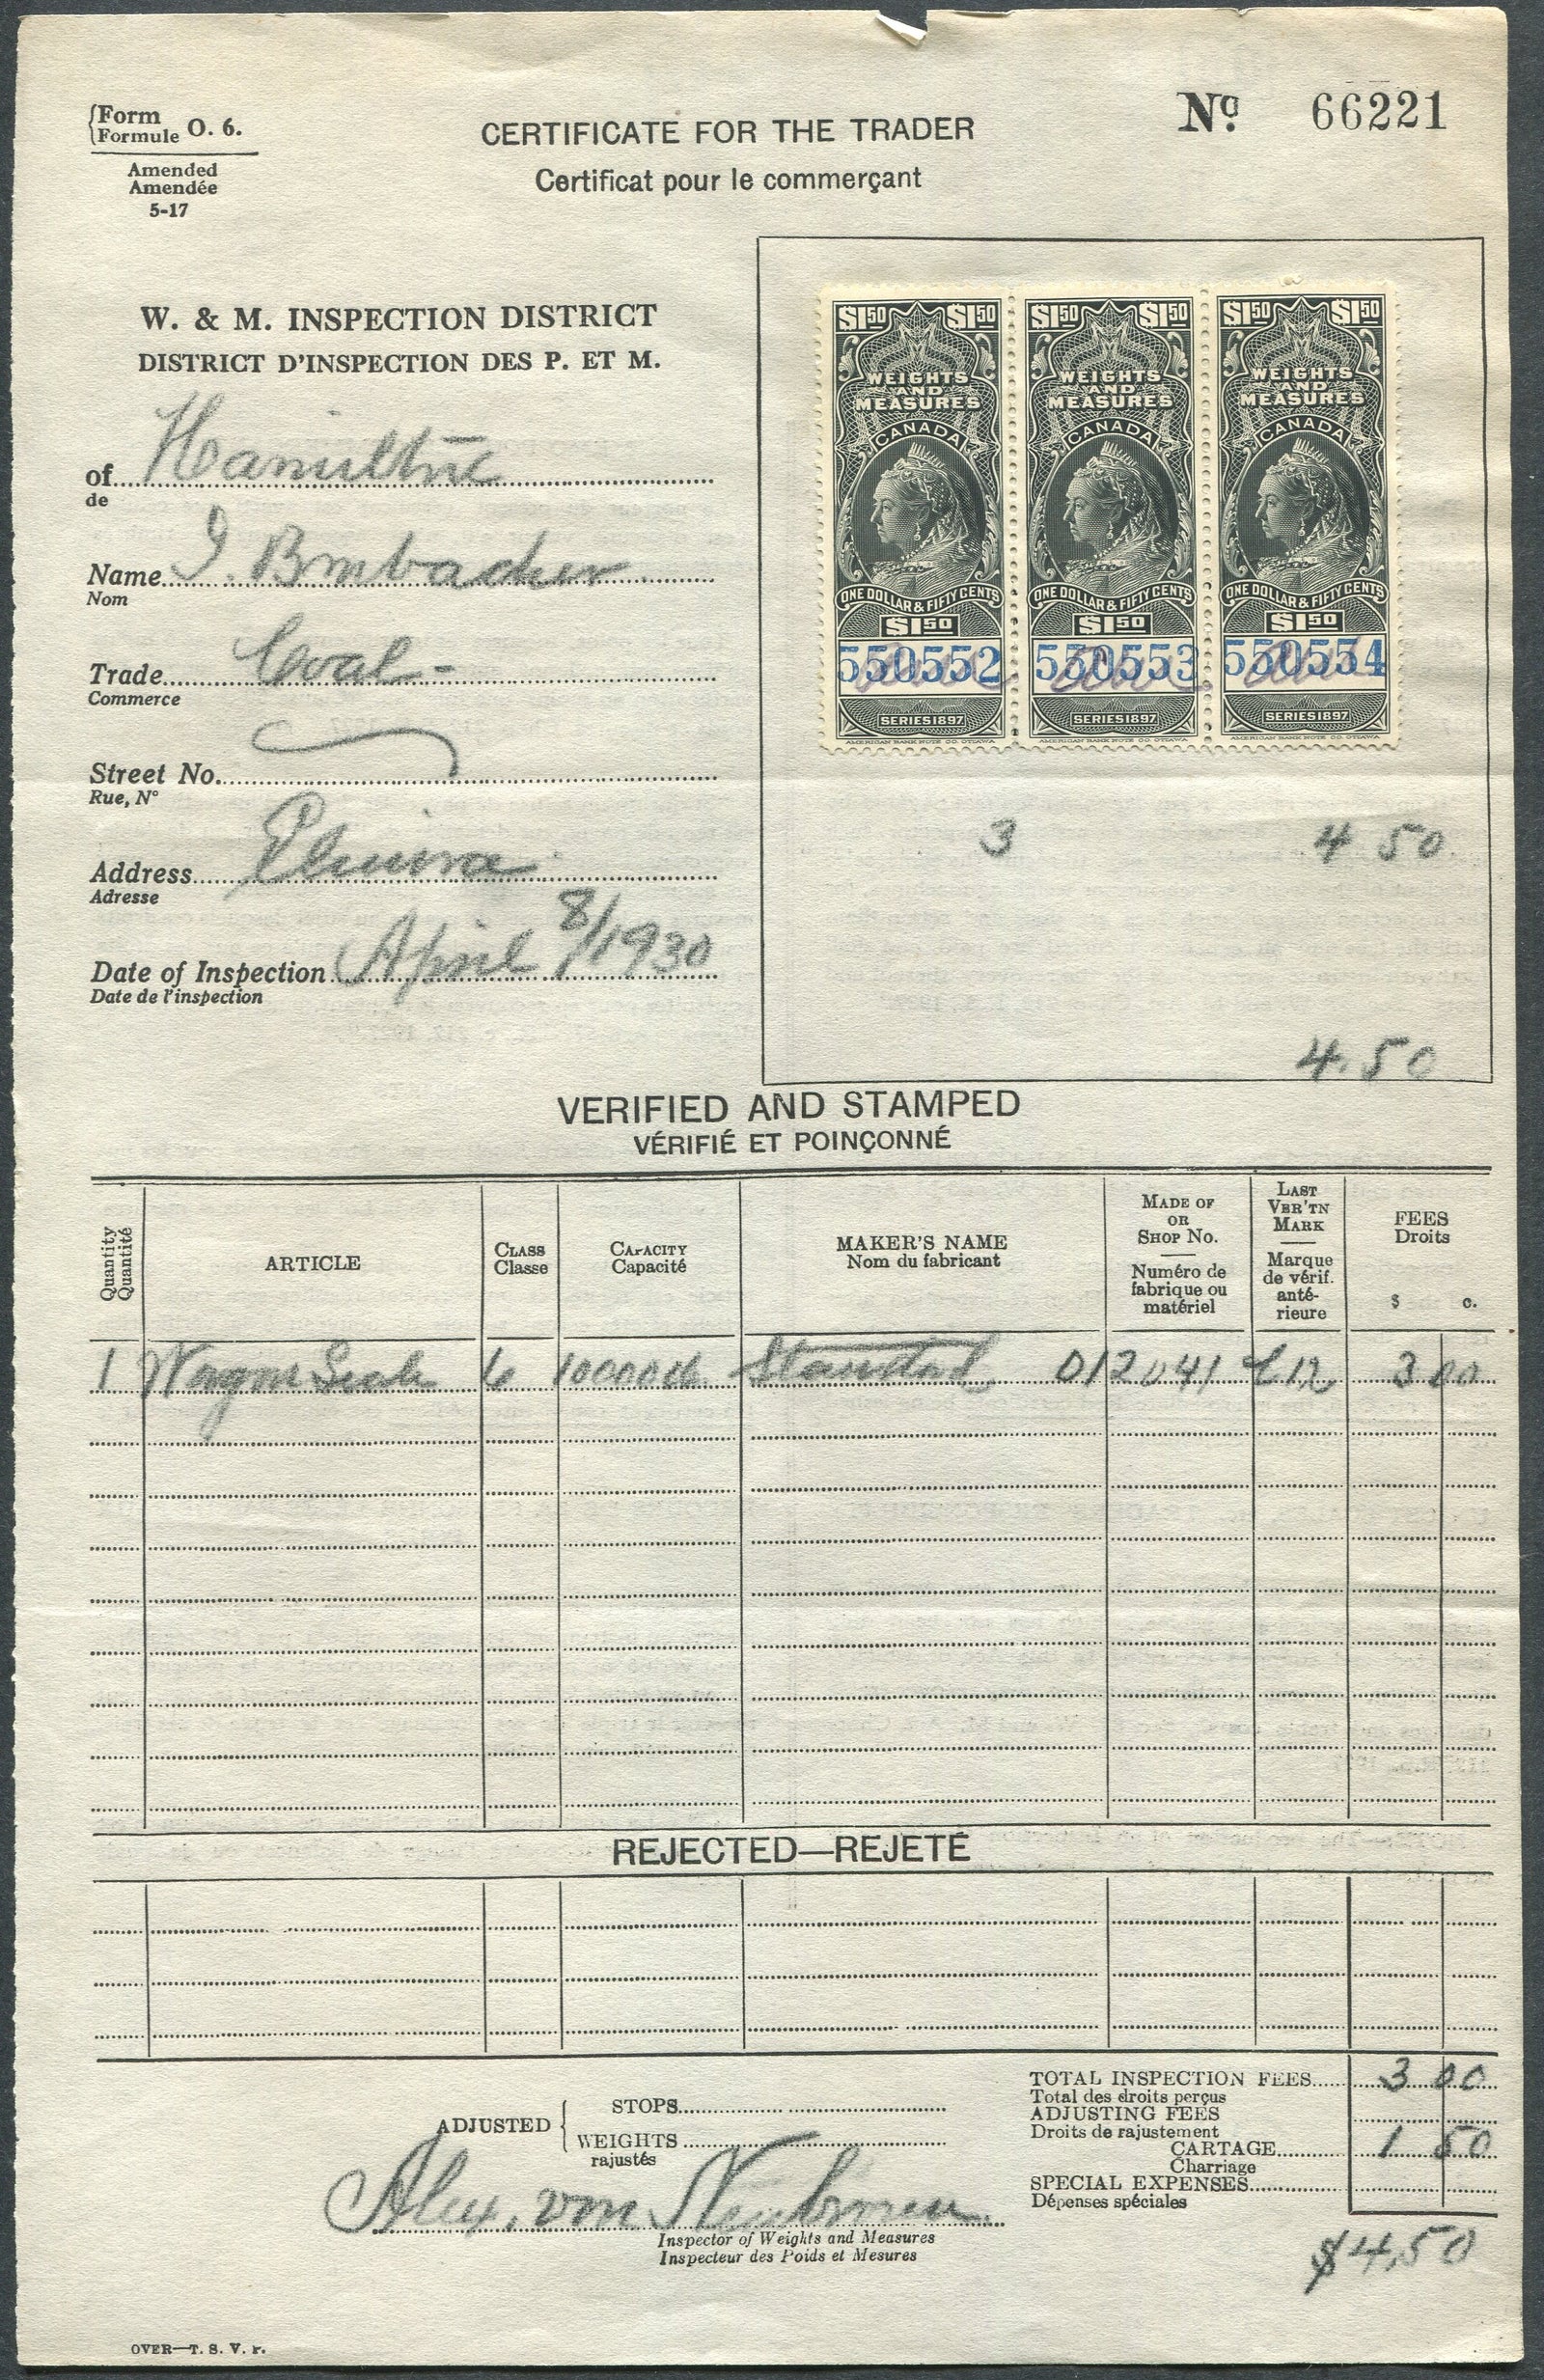 Form
Formule O. 6.
Amended
Amendée
5-17
CERTIFICATE FOR THE TRADER
Certificat pour le commerçant
No. 66221
W. & M. INSPECTION DISTRICT
DISTRICT D'INSPECTION DES P. ET M.
of Hamilton
de
Name
Nom
Trade Coal -
Commerce
Street No.
Rue, N°
Address Elmira
Adresse
Date of Inspection April 8/1930
Date de l'inspection
$1.50 $1.50 $1.50 $1.50 $1.50 $1.50
WEIGHTS AND MEASURES WEIGHTS AND MEASURES WEIGHTS AND MEASURES
CANADA CANADA CANADA
ONE DOLLAR & FIFTY CENTS ONE DOLLAR & FIFTY CENTS ONE DOLLAR & FIFTY CENTS
$1.50 $1.50 $1.50
550552 550553 550554
SERIES 1897 SERIES 1897 SERIES 1897
AMERICAN BANK NOTE CO. OTTAWA AMERICAN BANK NOTE CO. OTTAWA AMERICAN BANK NOTE CO. OTTAWA
3 4 50
4.50
VERIFIED AND STAMPED
VÉRIFIÉ ET POINÇONNÉ
Quantity
Quantité
ARTICLE
CLASS
Classe
CAPACITY
Capacité
MAKER'S NAME
Nom du fabricant
MADE OF
OR
SHOP No.
Numéro de
fabrique ou
matériel
LAST
VER'TN
MARK
Marque
de vérif.
anté-
rieure
FEES
Droits
$ c.
1 Wagon Scale 6 10000 lb Standard 012041 C12 3 00
REJECTED—REJETÉ
ADJUSTED
STOPS
WEIGHTS
rajustés
TOTAL INSPECTION FEES 3 00
Total des droits perçus
ADJUSTING FEES
Droits de rajustement
CARTAGE 1 50
Charriage
SPECIAL EXPENSES
Dépenses spéciales
$4.50
Alex. von
Inspector of Weights and Measures
Inspecteur des Poids et Mesures
OVER—T. S. V. P.